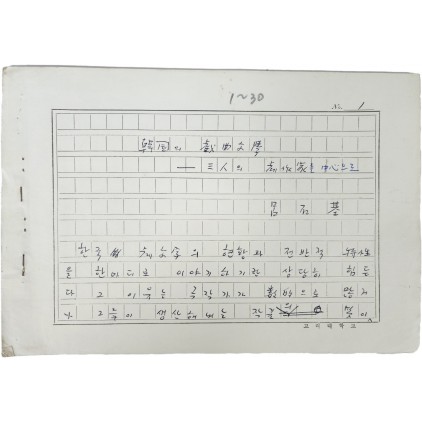 1~30
No. 1
韓国의 戱曲文學
— 三人의 劇作家를 中心으로
呂石基
한국 의 현황과 전반적
을 한마디로 이야기하기란 상당히 힘든
다 그 이유는 극작가가 않거
나 그들이 생산해내는 작품 이
고려대학교